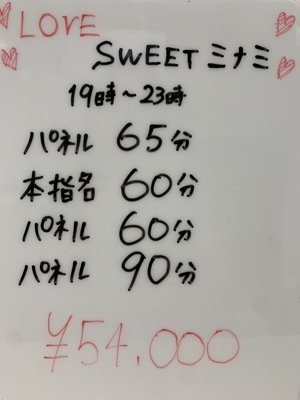 LOVE
SWEETミナミ
19時～23時
パネル 65分
本指名 60分
パネル 60分
パネル 90分
¥54.000